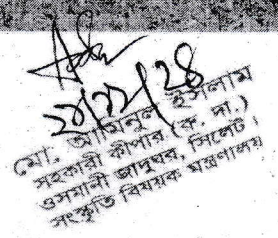 ২৮/১১/২৪
মো. আমিনুল ইসলাম
সহকারী কীপার (ক. দা.)
ওসমানী জাদুঘর, সিলেট।
সংস্কৃতি বিষয়ক মন্ত্রণালয়